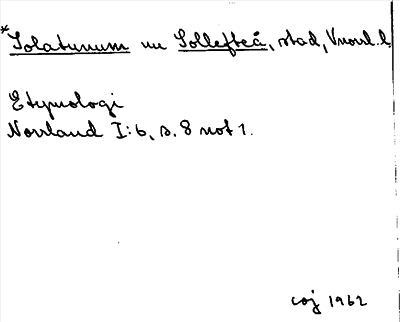 *Solatunum nu Sollefteå, stad, Vnorrl. l.
Etymologi
Norrland I:6, s. 8 not 1.
coj 1962